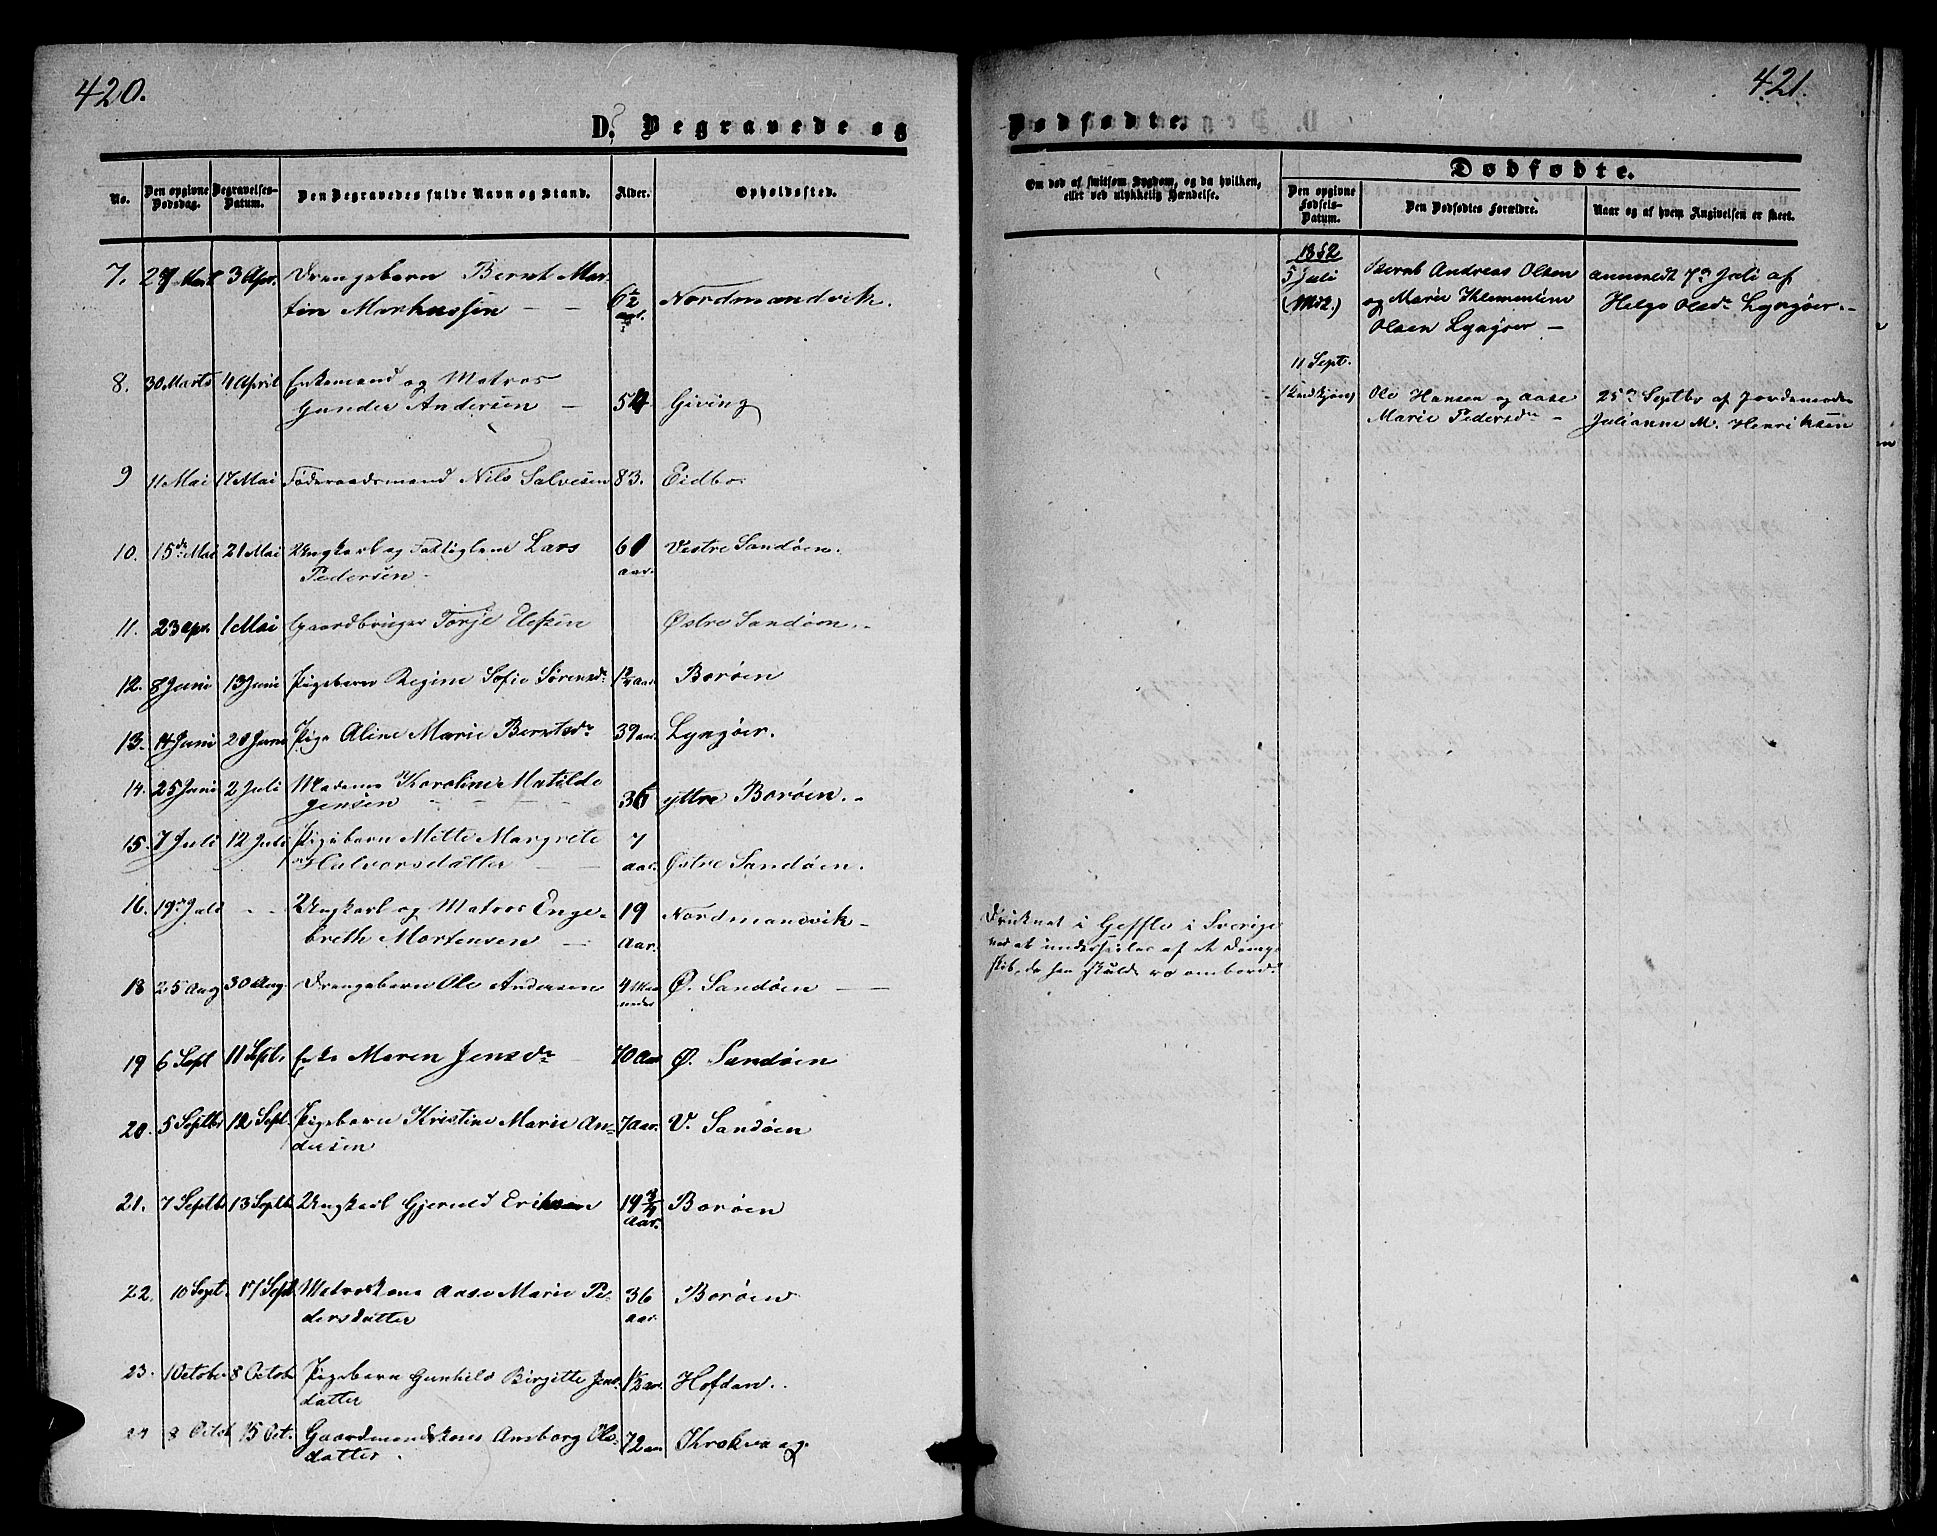 420.
D. Begravede og
No.
Den opgivne Dødsdag.
Begravelses-Datum.
Den Begravedes fulde Navn og Stand.
Alder.
Opholdssted.
7. 3 Apr. Drengebarn Bernt Mar-
tin Markussen 6½ Nordmandvik.
8. 30 Marts 4 April Enkemand og Matros
Gunder Andersen 54 Giving
9 11 Mai 17 Mai Føderaadsmand Nils Salvesen 83. Eidbo
10. 15de Mai 21 Mai Ungkarl og Fattiglem Lars 61 Vestre Sandøen.
Pedersen aar.
11. 23 Apr. 1 Mai Gaardbruger Torje Østre Sandøen.
12. 8 Juni 13 Juni Pigebarn Regine Sofie Sørensdr Borøen
13. 14 Juni 20 Juni Pige Aline Marie Berntsdr 39 aar. Lyngøer.
14. 25 Juni 2 Juli Madame Karoline Matilde
Jensen 36 yttre Borøen.
15. 7 Juli 12 Juli Pigebarn Mette Margrete 7
Halvorsdatter aar. Østre Sandøen.
16. 19de Juli - - Ungkarl og Matros Enge- 19 Nordmandsvik
breth Mortensen aar.
18 25 Aug 30 Aug. Drengebarn Ole Andersen 4 Maa Ø. Sandøen
neder
19 6 Sept 11 Sept. Enke Maren Jensdr 70 Aar Ø. Sandøen
20. 5 Septbr 12 Sept. Pigebarn Kristine Marie An- 7 aar. V. Sandøen
dersen
21. 7 Septbr 13 Septbr Ungkarl Gjeruld Eriksen 19 ¾ Borøen
Aar.
22. 10 Sept. 17 Sept Matroskone Aase Marie Pe- 36 Borøen
dersdatter aar.
23. 1 October 8 Octob Pigebarn Gunhild Birgitte Jens- 1½ aar. Hofdan.
datter
24 8 Octob 15 Oct. Gaardmandskone Ansborg Ols- 72 aar
datter.
421.
Dødfødte.
Om død af smitsom Sygdom, og da hvilken,
eller ved ulykkelig Hændelse.
Dødfødte.
Den opgivne Fødsels-Datum.
Den Dødfødtes Forældre.
Naar og af hvem Angivelsen er skeet.
1852
5 Juli Bernt Andreas Olsen anmeldt 7de Juli af
og Marie Klementine Helge Olsdr Lyngøer.
Olsen Lyngøer
11 Sept.
Ole Hansen og Aase 25de Septbr af Jordemoder
Marie Pedersdr Julianne M. Henriksen
Druknet i Geffle i Sverige
ved at underseiles af et Damp-
skib, da han skulde ro ombord.